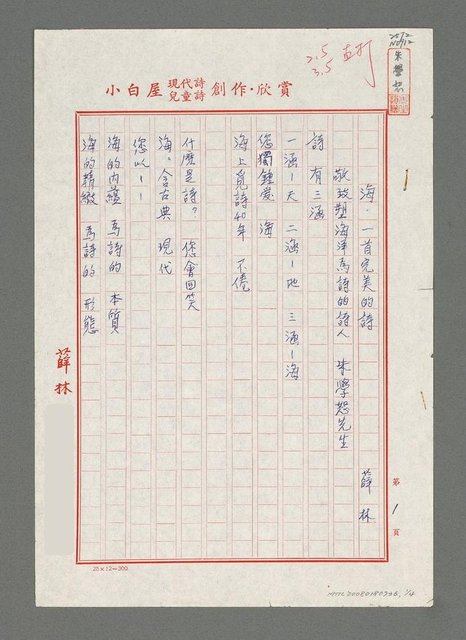 2.5
3.5 直打
朱學恕
小白屋 現代詩 兒童詩 創作·欣賞
海·一首完美的詩
敬致塑海洋為詩的詩人 朱學恕先生
薛林
詩 有三涵
一涵—天 二涵—地 三涵—海
您獨鍾愛 海
海上覓詩40年 不倦
什麼是詩？ 您會回笑
海。含古典 現代
您以——
海的內蘊 為詩的 本質
海的精緻 為詩的 形態
薛林
第 1 頁
25×12=300